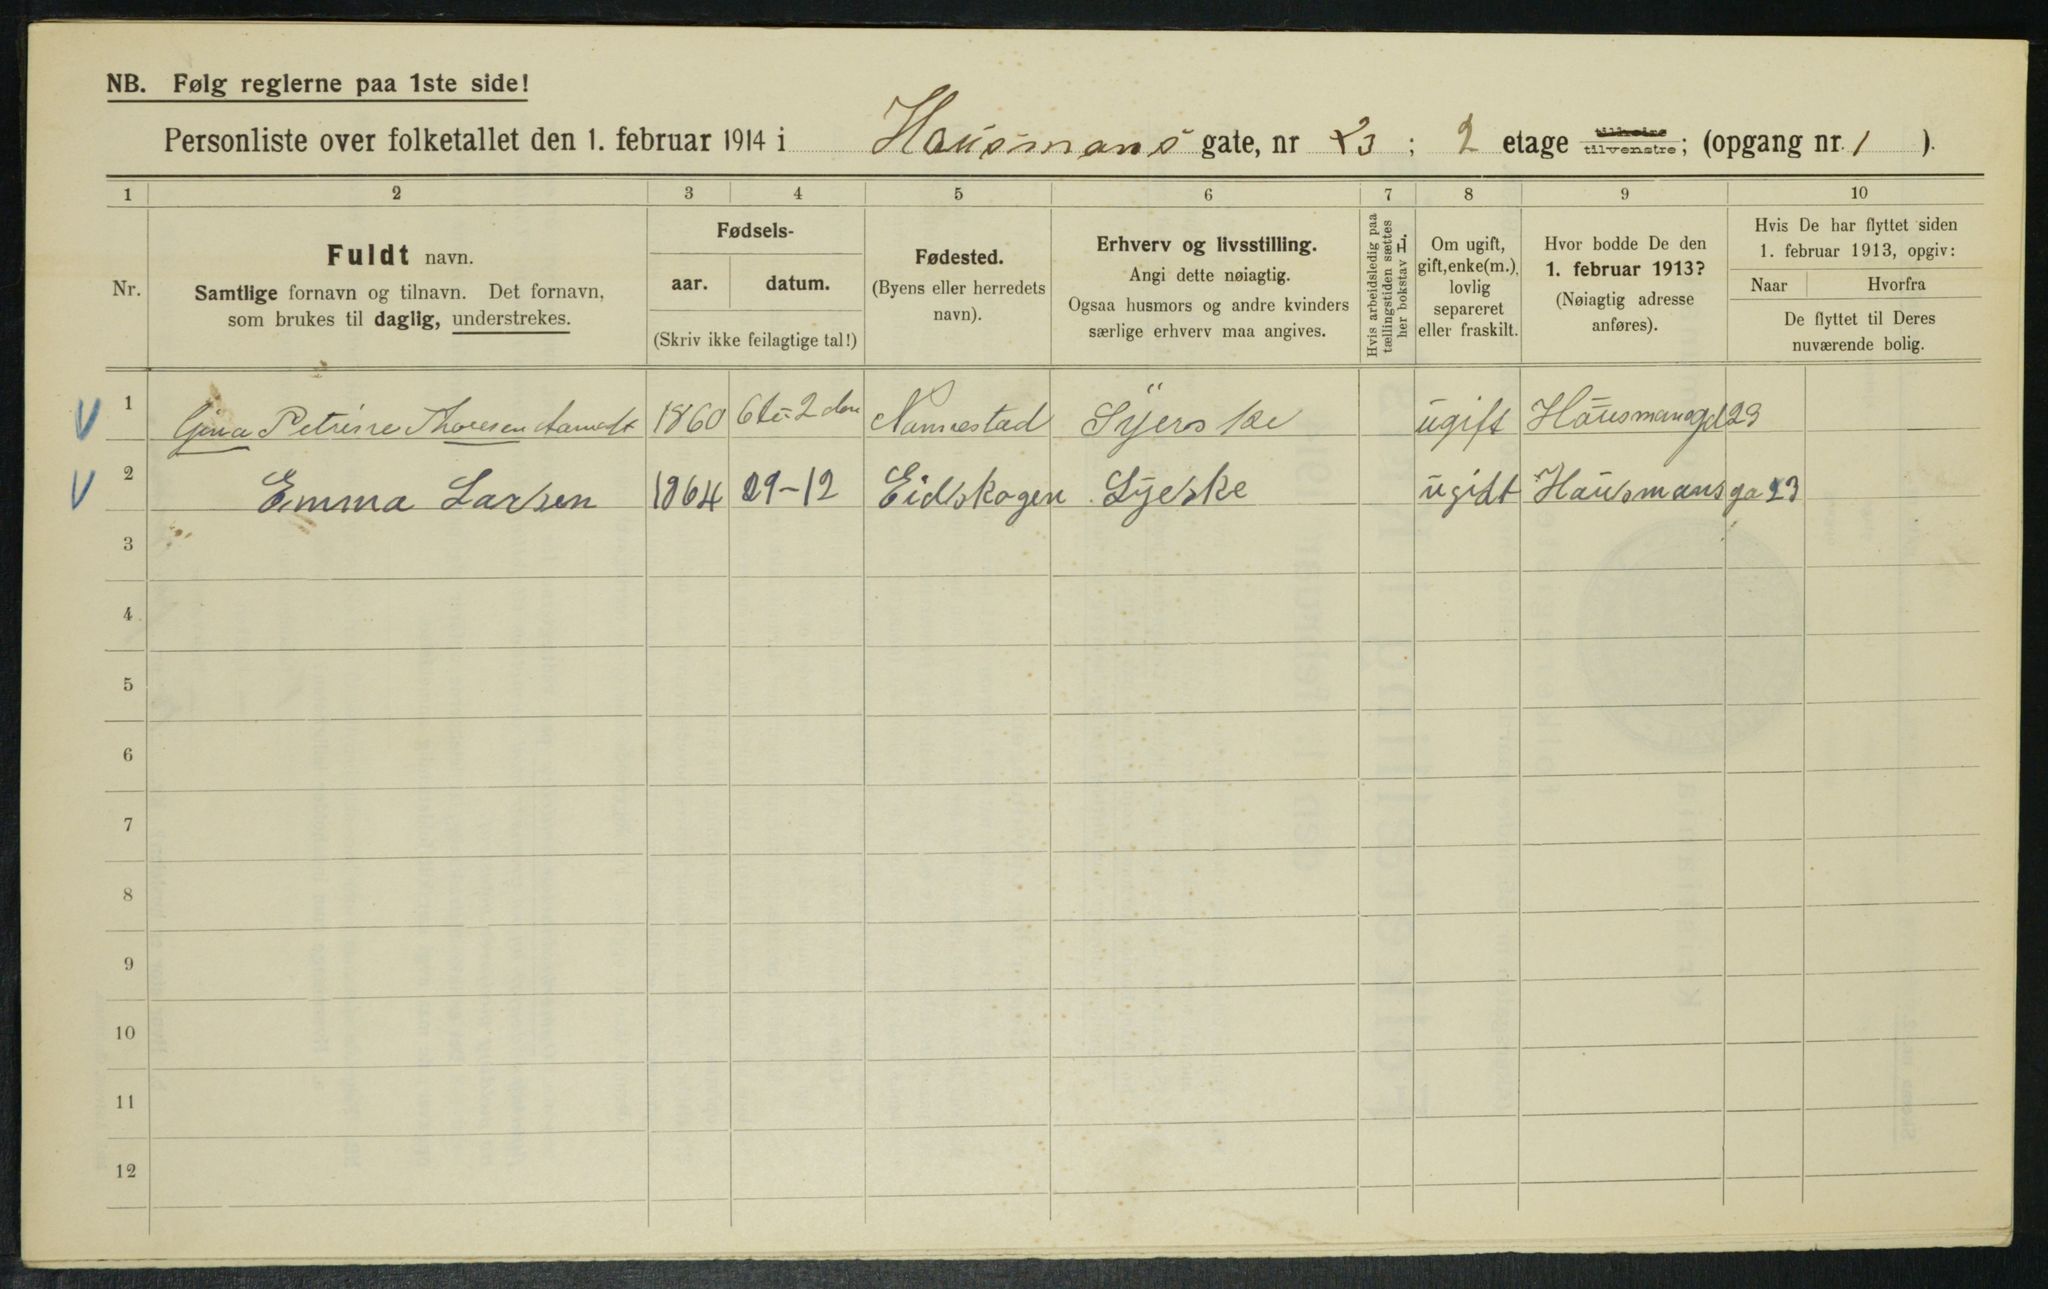 NB. Følg reglerne paa 1ste side!
Personliste over folketallet den 1. februar 1914 i Hausmans gate, nr 23; 2 etage tilhøire tilvenstre; (opgang nr. 1 ).
1 2 3 4 5 6 7 8 9 10
Nr.
Fuldt navn.
Samtlige fornavn og tilnavn. Det fornavn,
som brukes til daglig, understrekes.
Fødsels-
aar. datum.
(Skriv ikke feilagtige tal!)
Fødested.
(Byens eller herredets
navn).
Erhverv og livsstilling.
Angi dette nøiagtig.
Ogsaa husmors og andre kvinders
særlige erhverv maa angives.
Hvis arbeidsledig paa
tællingstiden sættes
her bokstav L.
Om ugift,
gift, enke(m.),
lovlig
separeret
eller fraskilt.
Hvor bodde De den
1. februar 1913?
(Nøiagtig adresse
anføres).
Hvis De har flyttet siden
1. februar 1913, opgiv:
Naar Hvorfra
De flyttet til Deres
nuværende bolig.
1 Gina Petrine Thoresen 1860 6te 2den Nannestad Syerske ugift Hausmansgd 23
2 Emma Larsen 1864 29-12 Eidskogen Syeske ugift Hausmans ga 23
3
4
5
6
7
8
9
10
11
12